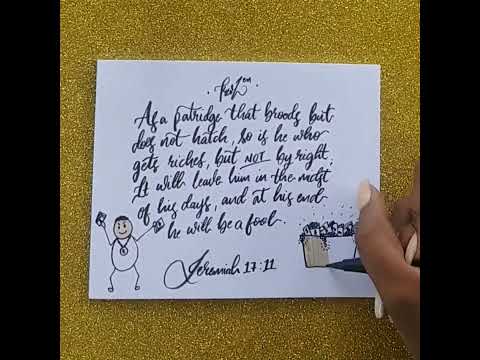 As a patridge that broods but
does not hatch, so is he who
gets riches, but NOT by right.
It will leave him in the midst
of his days, and at his end
he will be a fool.
Jeremiah 17:11